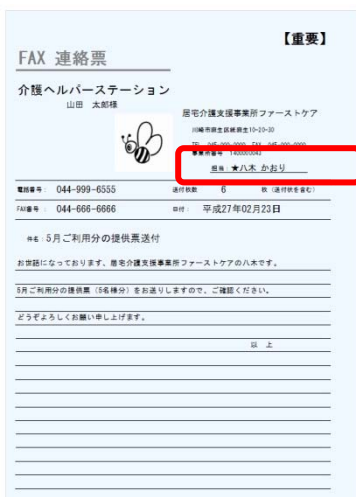 【重要】
FAX 連絡票
介護ヘルパーステーション
山田 太郎様
居宅介護支援事業所ファーストケア
川崎市麻生区細麻生10-20-30
事業所番号 1400000043
担当:★八木 かおり
電話番号: 044-999-6555
送付枚数 6 枚 (送付状を含む)
FAX番号: 044-666-6666
日付: 平成27年02月23日
件名:5月ご利用分の提供票送付
お世話になっております、居宅介護支援事業所ファーストケアの八木です。
5月ご利用分の提供票(5名様分)をお送りしますので、ご確認ください。
どうぞよろしくお願い申し上げます。
以 上